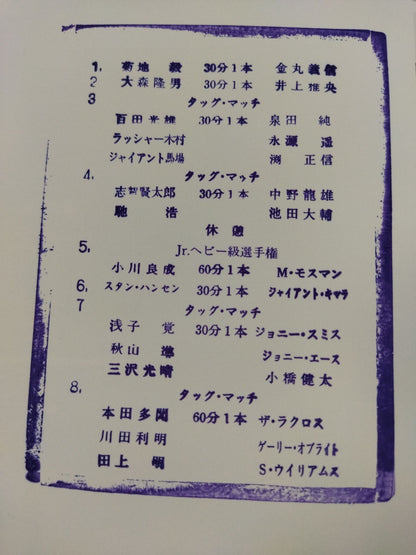 1. 菊地 毅 30分1本 金丸義信
2 大森隆男 30分1本 井上雅央
3 タッグ・マッチ
百田光雄 30分1本 泉田 純
ラッシャー木村 永源 遥
ジャイアント馬場 渕 正信
4. タッグ・マッチ
志賀賢太郎 30分1本 中野龍雄
馳 浩 池田大輔
休憩
5. Jr.ヘビー級選手権
小川良成 60分1本 M・モスマン
6. スタン・ハンセン 30分1本 ジャイアント・キマラ
7 タッグ・マッチ
浅子 覚 30分1本 ジョニー・スミス
秋山 準 ジョニー・エース
三沢光晴 小橋健太
8. タッグ・マッチ
本田多聞 60分1本 ザ・ラクロス
川田利明 ゲーリー・オブライト
田上 明 S・ウイリアムス